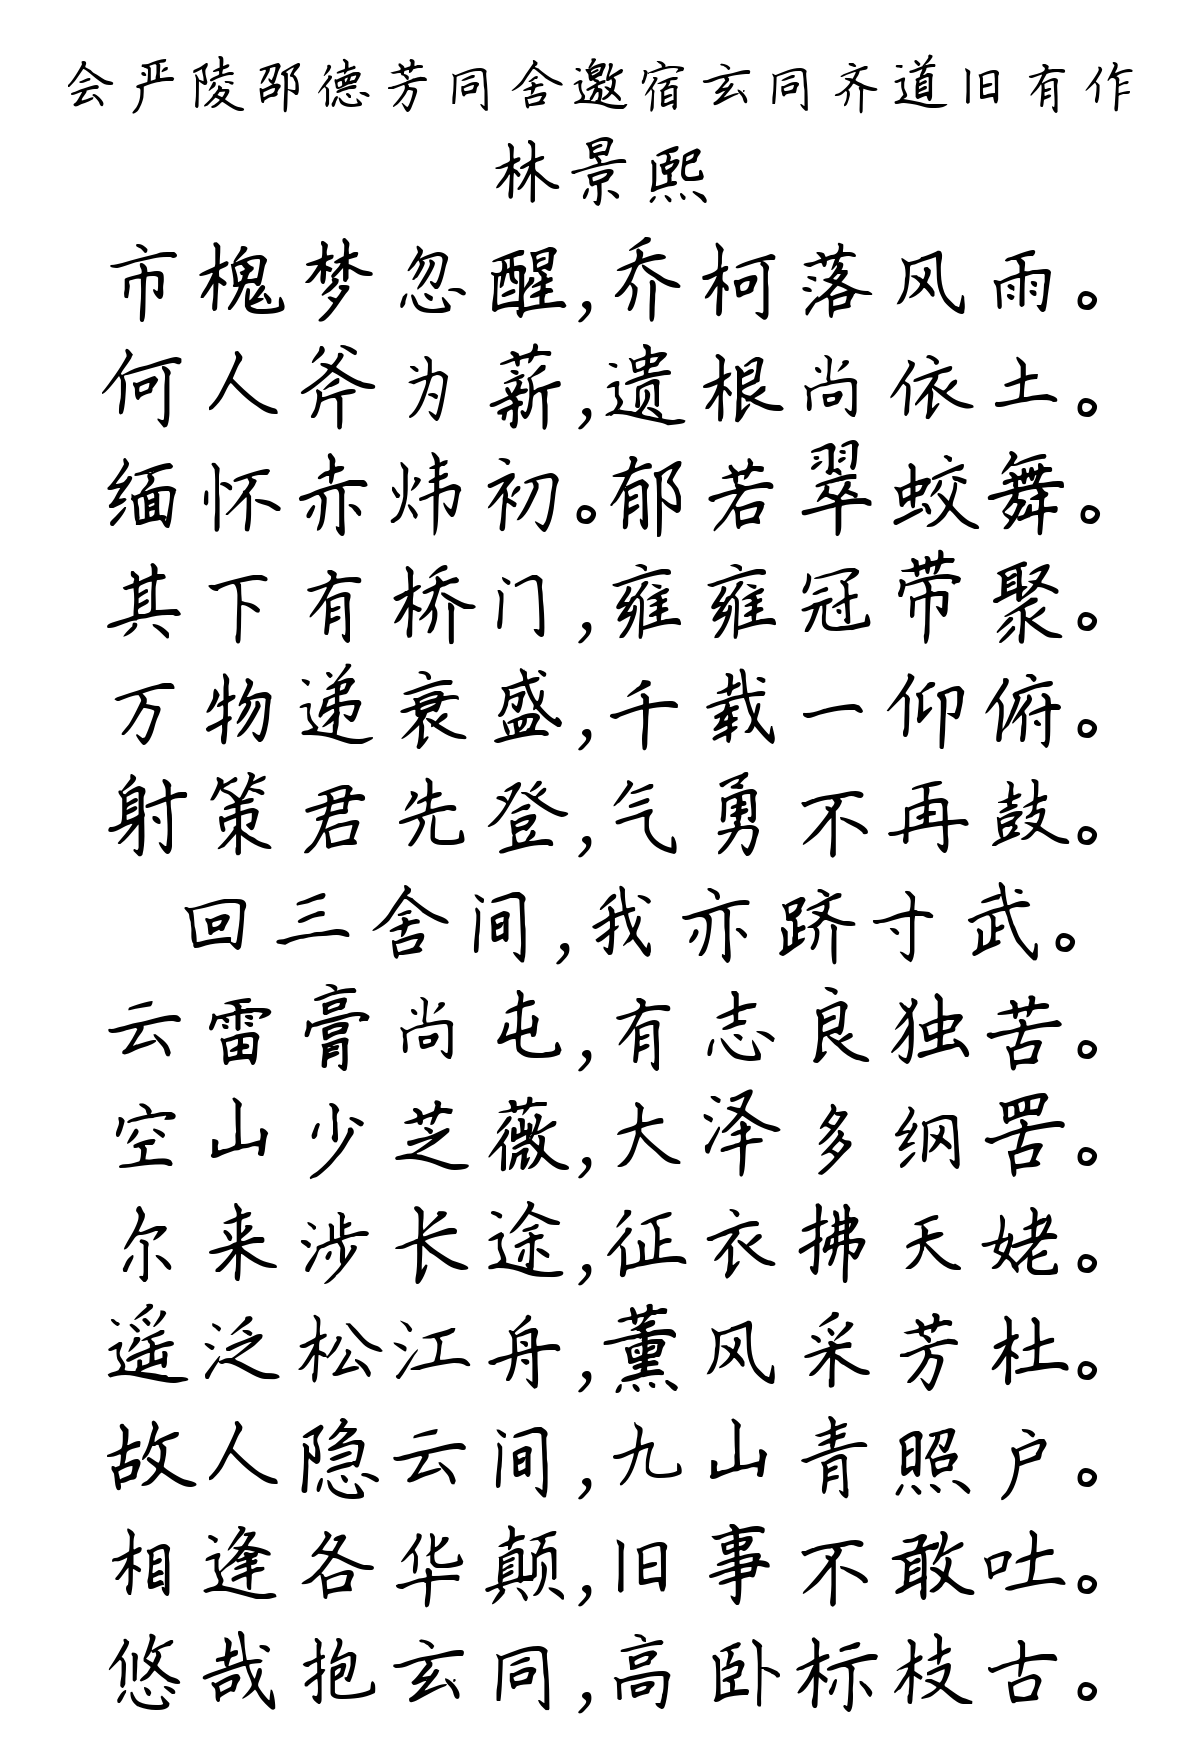 会严陵邵德芳同舍邀宿玄同齐道旧有作
林景熙
市槐梦忽醒,乔柯落风雨。
何人斧为薪,遗根尚依土。
缅怀赤炜初。郁若翠蛟舞。
其下有桥门,雍雍冠带聚。
万物递衰盛,千载一仰俯。
射策君先登,气勇不再鼓。
回三舍间,我亦跻寸武。
云雷膏尚屯,有志良独苦。
空山少芝薇,大泽多纲罟。
尔来涉长途,征衣拂天姥。
遥泛松江舟,薰风采芳杜。
故人隐云间,九山青照户。
相逢各华颠,旧事不敢吐。
悠哉抱玄同,高卧标枝古。